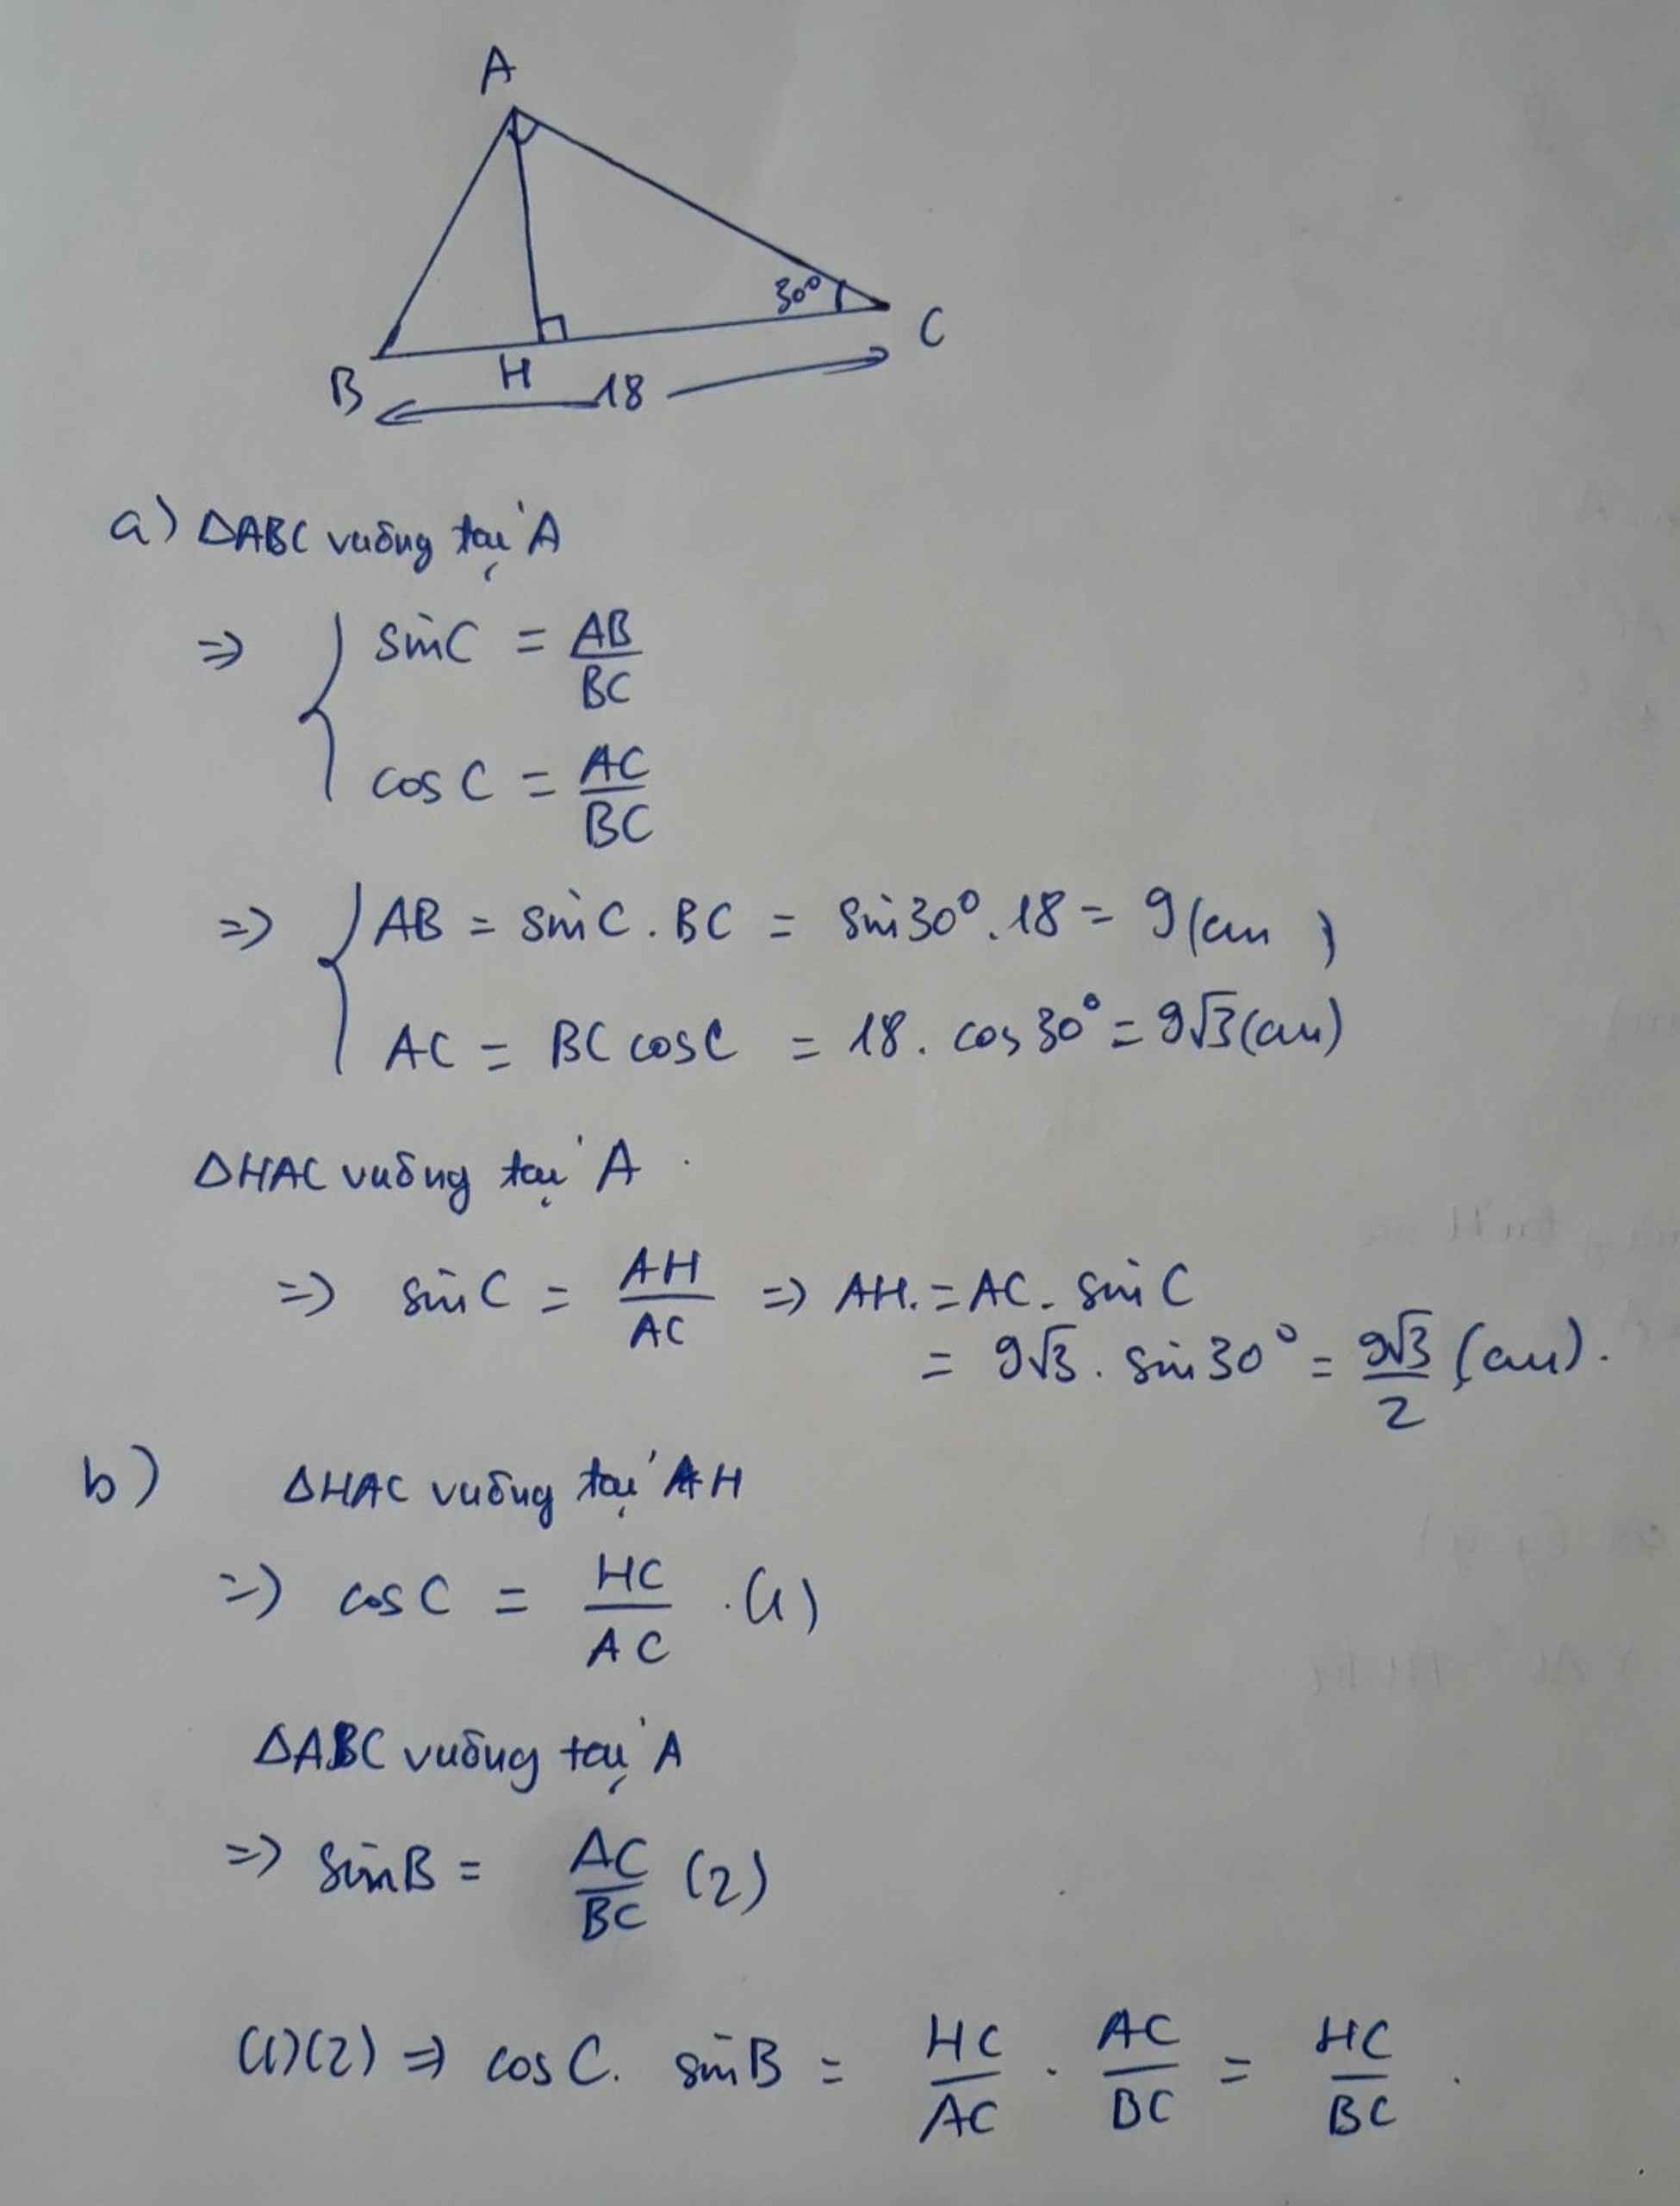 A
30°
C
B
H
18
a) ΔABC vuông tại A
=> { sinC = AB/BC
cos C = AC/BC
=> { AB = sinC . BC = sin30° . 18 = 9 (cm)
AC = BC cosC = 18 . cos 30° = 9√3 (cm)
ΔHAC vuông tại A
=> sin C = AH/AC => AH = AC . sin C
= 9√3 . sin 30° = 9√3/2 (cm).
b) ΔHAC vuông tại H
=> cos C = HC/AC . (1)
ΔABC vuông tại A
=> sinB = AC/BC (2)
(1)(2) => cos C. sinB = HC/AC . AC/BC = HC/BC .